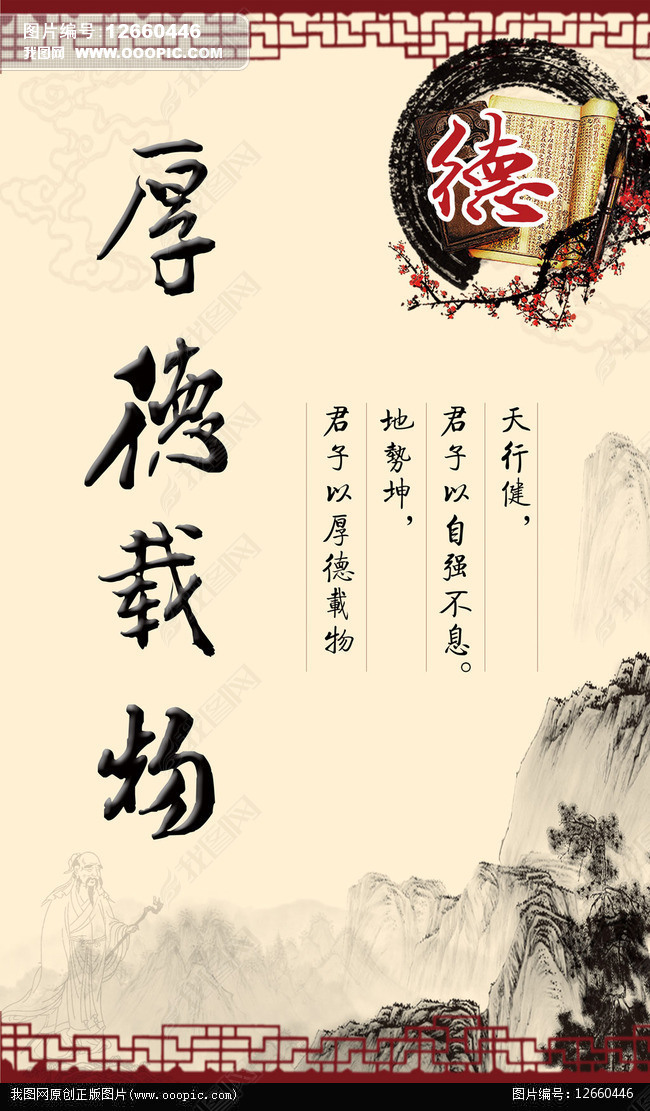 图片编号:12660446
我图网 www.ooopic.com
德
天行健，
君子以自强不息。
地勢坤，
君子以厚德載物
厚德载物
我图网原创正版图片(www.ooopic.com)
图片编号：12660446